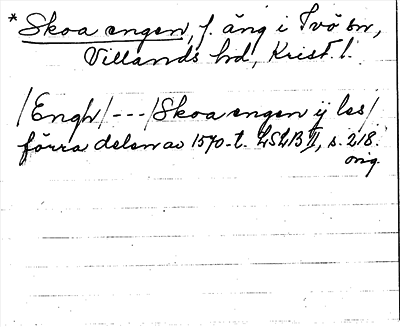 * Skoa engen, f. äng i Ivö sn,
Villands hd, Krist. l.
/Engh/---/Skoa engen ij les/
förra delen av 1570-t. LSLB II, s. 218.
orig.